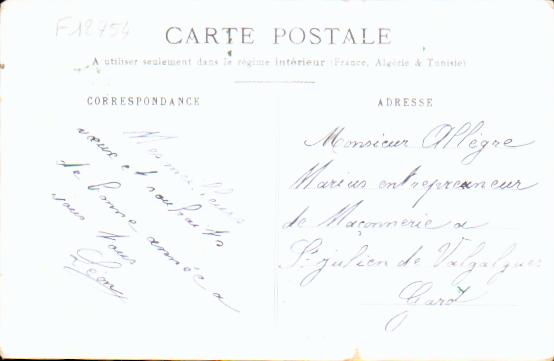 F12754
CARTE POSTALE
A utiliser seulement dans le régime intérieur (France, Algérie & Tunisie)
CORRESPONDANCE
Mes meilleurs
vœux et souhaits
de bonne année a
vous tous
Léon
ADRESSE
Monsieur Allègre
Marius entrepreuneur
de Maçonnerie a
St julien de Valgalgues
Gard